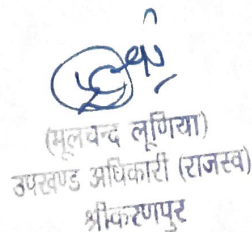 (मूलचन्द लूणिया)
उपखण्ड अधिकारी (राजस्व)
श्रीकरणपुर